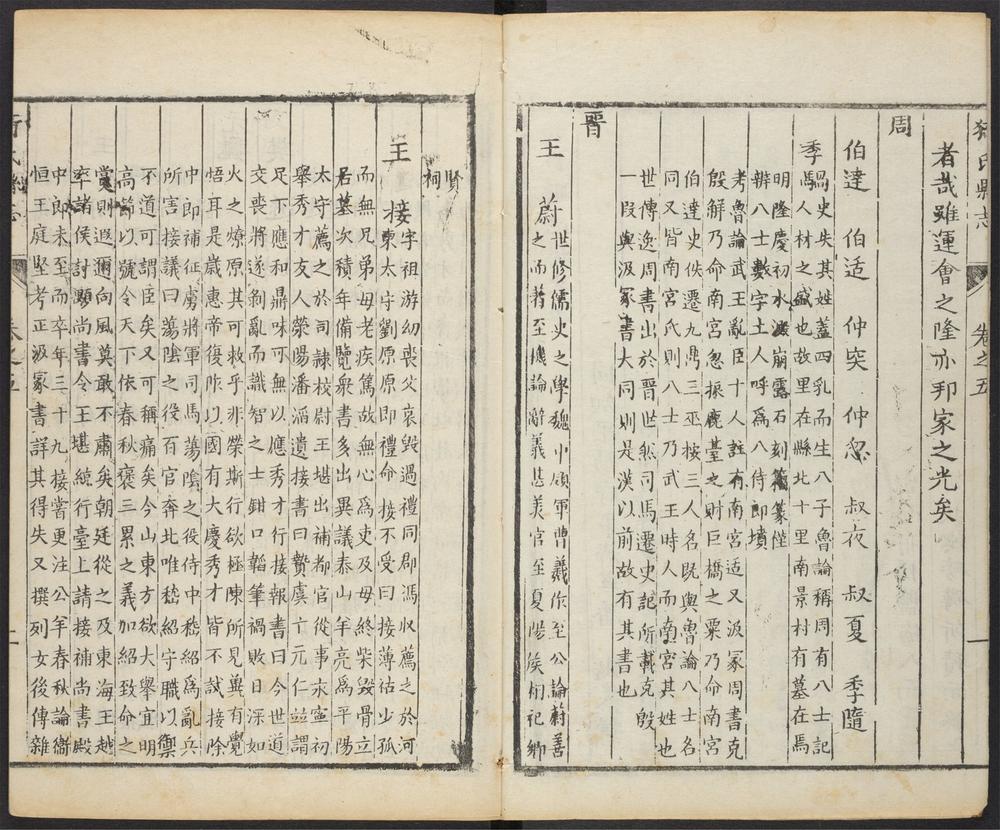 猗氏縣志 卷之五 一
者哉雖運會之隆亦邦家之光矣
周
伯達 伯适 仲突 仲忽 叔夜 叔夏 季隨
季騧史失其姓蓋四乳而生八子魯論稱周有八士記
人材之盛也故里在縣北十里南景村有墓在焉
明隆慶初水漲崩露石刻籀篆惟
辨八士數字土人呼爲八侍郎墳
考魯論武王亂臣十人註有南宮适又汲冢周書克
殷解乃命南宮忽振鹿臺之財巨橋之粟乃命南宮
伯達史佚遷九鼎三巫按三人名既與魯論八士名
同又皆南宮氏則八士乃武王時人而南宮其姓也
世傳逸周書出於晉世然司馬遷史記所載克殷
一段與汲冢書大同則是漢以前故有其書也
晉
王 蔚世修儒史之學魏中領軍曹羲作至公論蔚善
之而著至機論辭義甚美官至夏陽侯相祀鄉
賢祠
王 接字祖游幼喪父哀毀過禮同郡馮収薦之於河
東太守劉原原即禮命接不受曰接薄祜少孤
而無兄弟母老疾篤故無心爲吏及母終柴毀骨立
居墓次積年備覽衆書多出異議泰山羊亮爲平陽
太守薦之於司隸校尉王堪出補都官從事永寧初
舉秀才友人滎陽潘滔遺接書曰摯虞卞元仁並謂
足下應和鼎味可無以應秀才行接報書曰今世道
交喪將遂剝亂而識智之士鉗口韜筆禍敗日深如
火之燎原其可救乎非榮斯行欲極陳所見冀有覺
悟耳是歲惠帝復阼以國有大慶秀才皆不試接除
中郎補征虜將軍司馬蕩陰之役侍中嵇紹爲亂兵
所害接議曰蕩陰之役百官奔北唯嵇紹守職以禦
不道可謂臣矣又可稱痛矣今山東方欲大舉宜明
高節以號令天下依春秋褒三累之義加紹致命之
賞則遐邇向風莫敢不肅矣朝廷從之及東海王越
率諸侯討顒尚書令王堪統行臺上請接補尚書殿
中郎未至而卒年三十九接嘗更注公羊春秋論衛
恒王庭堅考正汲冢書詳其得失又撰列女後傳雜
二